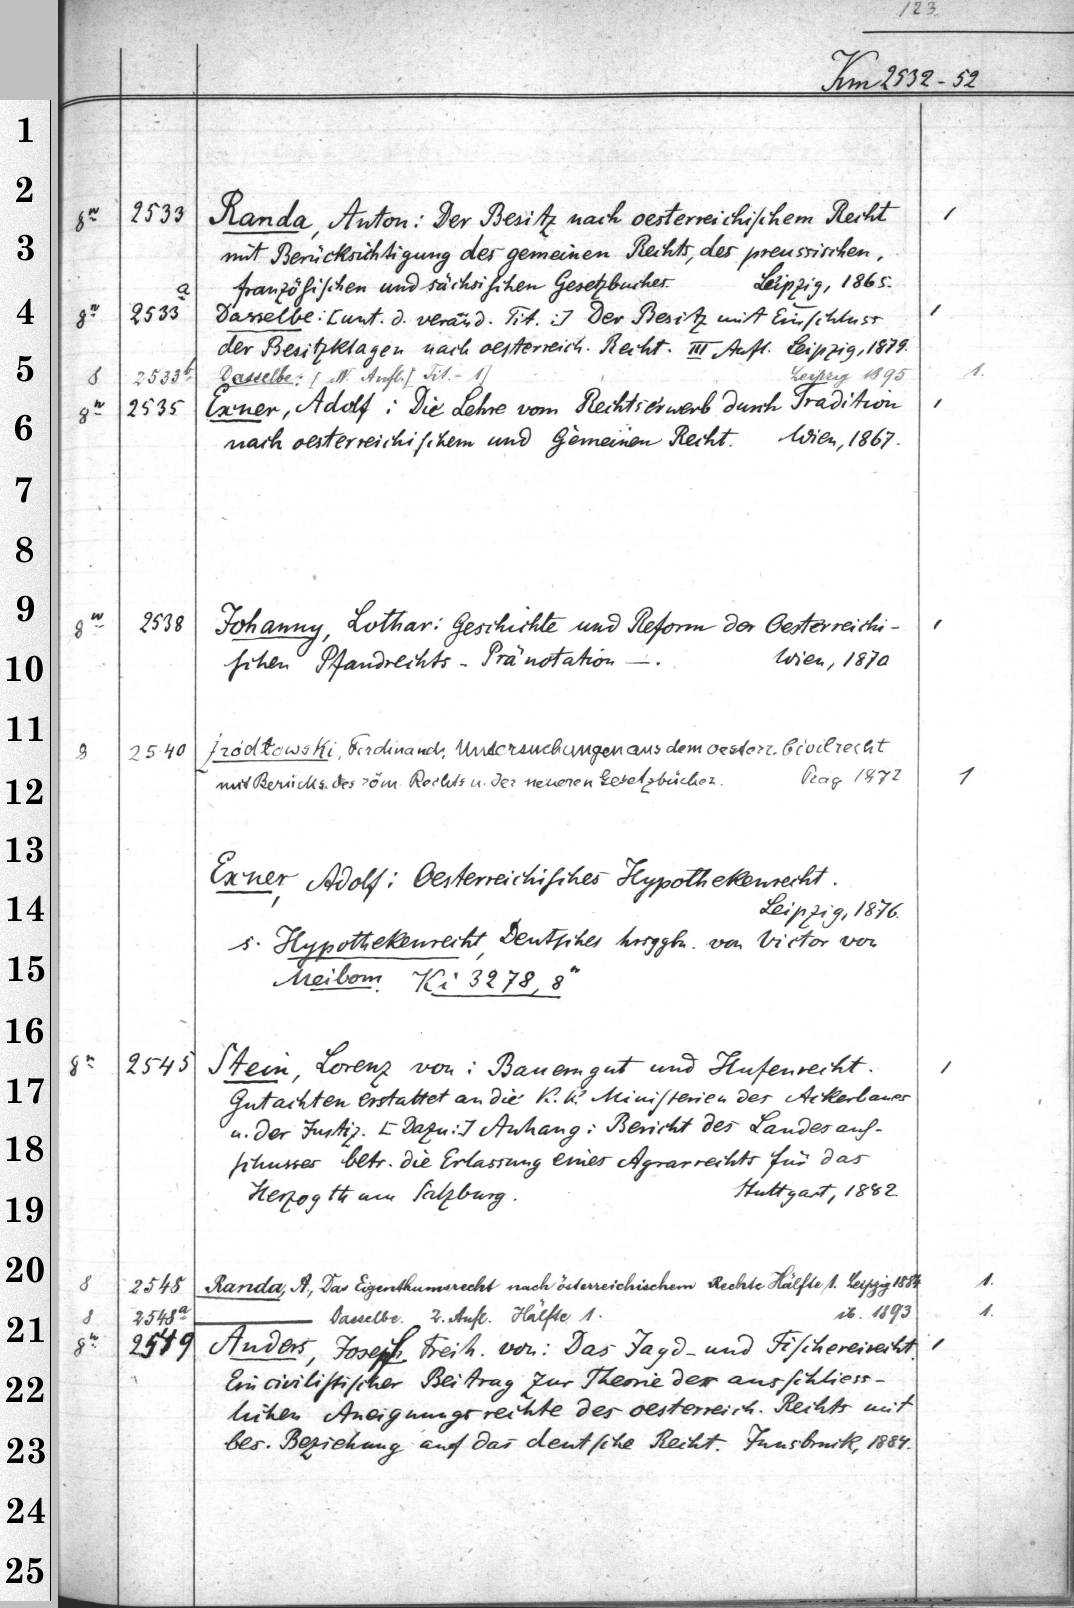 123.
Km 2532-52
1
2
8º 2533 Randa, Anton: Der Besitz nach oesterreichischem Recht 1
3
mit Berücksichtigung des gemeinen Rechts, des preussischen,
französischen und sächsischen Gesetzbuches. Leipzig, 1865.
4
8º 2533a Dasselbe: [unt. d. veränd. Tit.:] Der Besitz mit Einschluss 1
der Besitzklagen nach oesterreich. Recht. III Aufl. Leipzig, 1879.
5
8 2533b Dasselbe: [IV. Aufl.] Tit. - 1] Leipzig 1895 1.
8º 2535 Exner, Adolf: Die Lehre vom Rechtserwerb durch Tradition 1
6
nach oesterreichischem und Gemeinen Recht. Wien, 1867.
7
8
9
8º 2538 Johanny, Lothar: Geschichte und Reform der Oesterreichi- 1
10
schen Pfandrechts-Pränotation —. Wien, 1870
11
8 2540 Źródłowski, Ferdinand, Untersuchungen aus dem oesterr. Civilrecht
12
mit Berücks. des röm. Rechts u. der neueren Gesetzbücher. Prag 1872 1
13
Exner, Adolf: Oesterreichisches Hypothekenrecht.
14
Leipzig, 1876.
s. Hypothekenrecht, Deutsches hrsggbn. von Victor von
15
Meibom. Ki 3278, 8º
16
8º 2545 Stein, Lorenz von: Bauerngut und Hufenrecht. 1
17
Gutachten erstattet an die K. K. Ministerien des Ackerbaues
u. der Justiz. [Dazu:] Anhang: Bericht des Landesauf-
18
schusses betr. die Erlassung eines Agrarrechts für das
19
Herzogthum Salzburg. Stuttgart, 1882
20
8 2548 Randa, A., Das Eigenthumsrecht nach österreichischem Rechte Hälfte 1. Leipzig 1884 1.
8 2548a ——— Dasselbe. 2. Aufl. Hälfte 1. ib. 1893 1.
21
8º 2549 Anders, Joseph Freih. von: Das Jagd- und Fischereirecht. 1
22
Ein civilistischer Beitrag zur Theorie der ausschliess-
lichen Aneignungsrechte des oesterreich. Rechts mit
23
bes. Beziehung auf das deutsche Recht. Innsbruck, 1884.
24
25